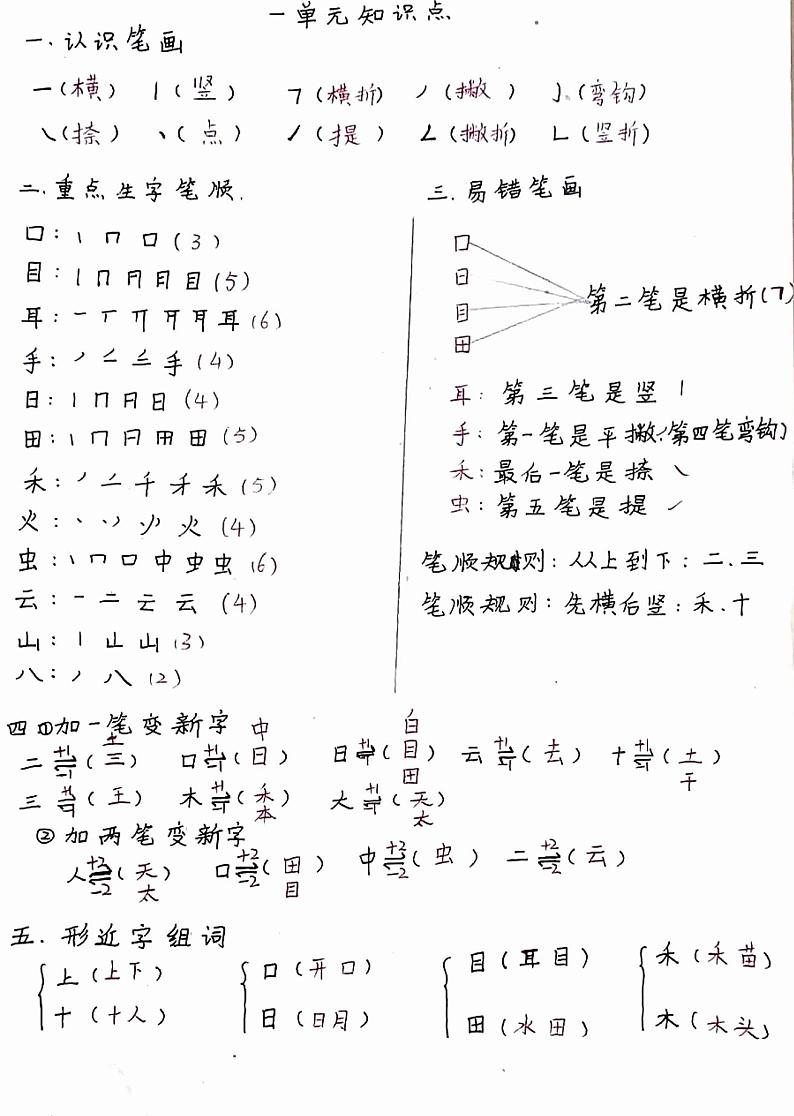 一单元知识点
一.认识笔画
一(横) 丨(竖) ㇕(横折) 丿(撇) ㇁(弯钩)
㇏(捺) 丶(点) ㇀(提) ㇜(撇折) ㇗(竖折)
二.重点生字笔顺.
口: 丨 冂 口 (3)
目: 丨 冂 月 月 目 (5)
耳: 一 丅 丌 耳 (6)
手: 丿 二 三 手 (4)
日: 丨 冂 日 (4)
田: 丨 冂 日 田 (5)
禾: 丿 二 千 禾 (5)
火: 丶 丷 火 (4)
虫: 丨 冂 口 中 虫 虫 (6)
云: 一 二 云 云 (4)
山: 丨 山 山 (3)
八: 丿 八 (2)
三.易错笔画
口
日
目
田
第二笔是横折(㇕)
耳: 第三笔是竖丨
手: 第一笔是平撇㇒(第四笔弯钩)
禾: 最后一笔是捺㇏
虫: 第五笔是提㇀
笔顺规则: 从上到下: 二.三
笔顺规则: 先横后竖: 禾.十
四①加一笔变新字
二 +1 ⇌ -1 (土 三) 口 +1 ⇌ -1 (中 日) 日 +1 ⇌ -1 (白 目 田) 云 +1 ⇌ -1 (去) 十 +1 ⇌ -1 (土 干)
三 +1 ⇌ -1 (王) 木 +1 ⇌ -1 (禾 本) 大 +1 ⇌ -1 (天 太)
②加两笔变新字
人 +2 ⇌ -2 (天 太) 口 +2 ⇌ -2 (田 目) 中 +2 ⇌ -2 (虫) 二 +2 ⇌ -2 (云)
五.形近字组词
上(上下) 口(开口) 目(耳目) 禾(禾苗)
十(十人) 日(日月) 田(水田) 木(木头)